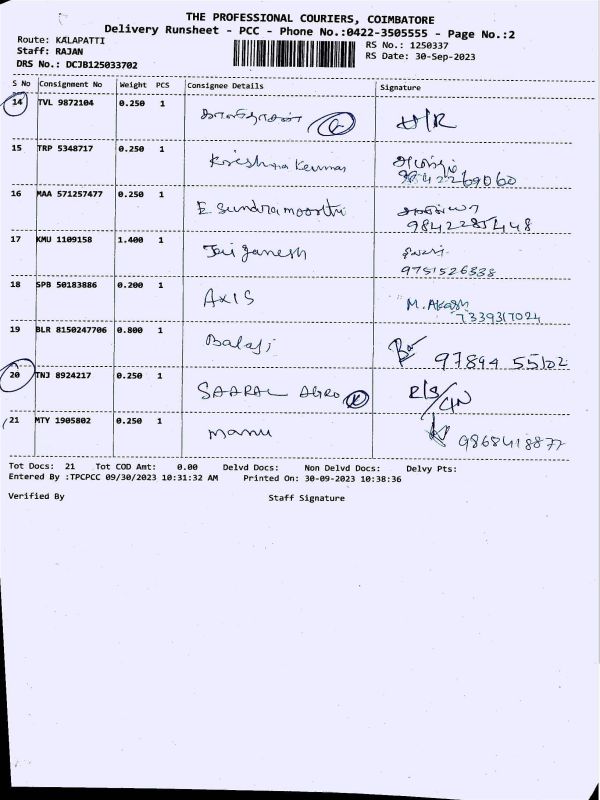 THE PROFESSIONAL COURIERS, COIMBATORE
Delivery Runsheet - PCC - Phone No.:0422-3505555 - Page No.:2
Route: KALAPATTI
Staff: RAJAN
DRS No.: DCJB125033702
RS No.: 1250337
RS Date: 30-Sep-2023
S No Consignment No Weight PCS Consignee Details Signature
14 TVL 9872104 0.250 1 H/R
15 TRP 5348717 0.250 1 Krishna Kumar
16 MAA 571257477 0.250 1 E Sundramoorthi
17 KMU 1109158 1.400 1 Jai ganesh
9751526338
18 SPB 50183886 0.200 1 AXIS M. Akash
7339317024
19 BLR 8150247706 0.800 1 Balaji 97894 55102
20 TNJ 8924217 0.250 1 SAARAL AGRO
21 MTY 1905802 0.250 1 manu 9868418877
Tot Docs: 21 Tot COD Amt: 0.00 Delvd Docs: Non Delvd Docs: Delvy Pts:
Entered By :TPCPCC 09/30/2023 10:31:32 AM Printed On: 30-09-2023 10:38:36
Verified By Staff Signature